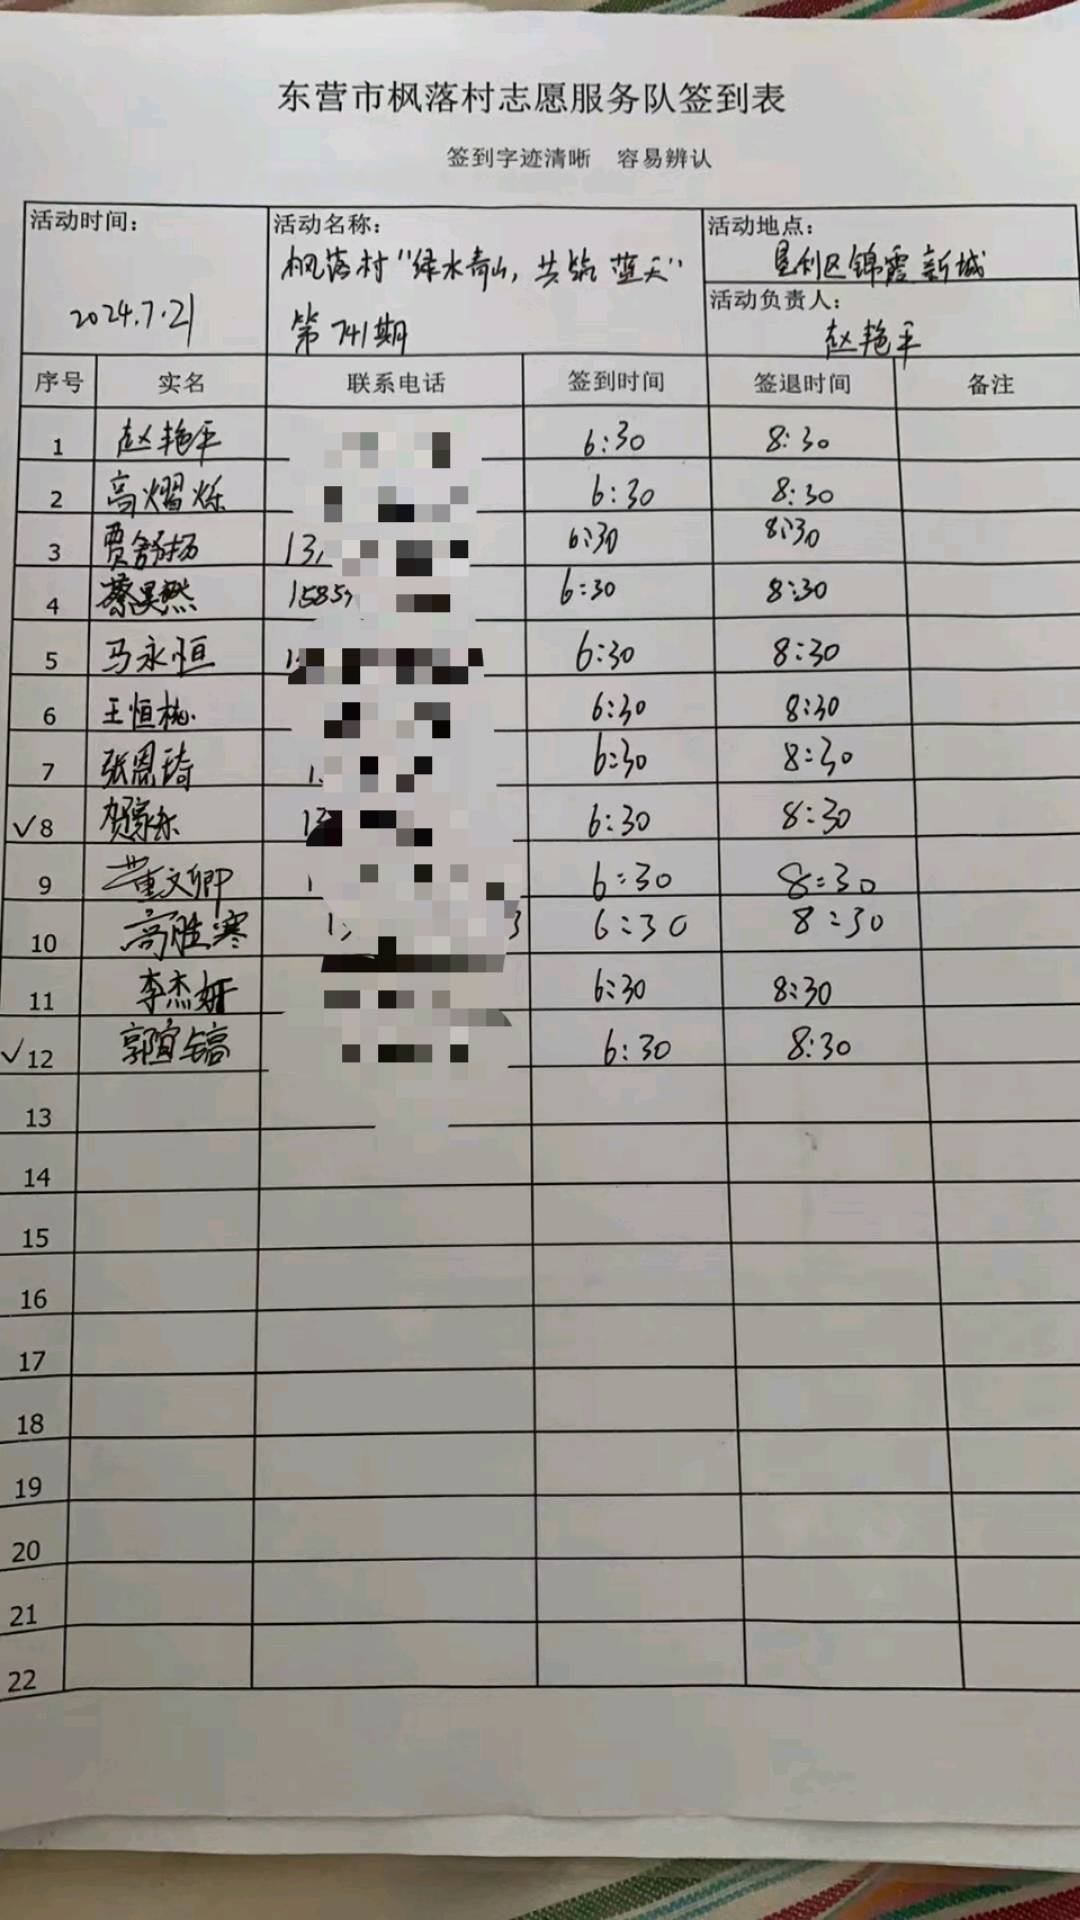 东营市枫落村志愿服务队签到表
签到字迹清晰 容易辨认
活动时间:
2024.7.21
活动名称:
枫落村"绿水青山,共筑蓝天"
第741期
活动地点:
垦利区锦霞新城
活动负责人:
赵艳平
序号 实名 联系电话 签到时间 签退时间 备注
1 赵艳平 6:30 8:30
2 高熠烁 6:30 8:30
3 贾舒扬 13 6:30 8:30
4 蔡昊然 1585 6:30 8:30
5 马永恒 1 6:30 8:30
6 王恒 6:30 8:30
7 张恩琦 1 6:30 8:30
✓8 贺 13 6:30 8:30
9 董文卿 1 6:30 8:30
10 高胜寒 1 3 6:30 8:30
11 李杰妍 6:30 8:30
✓12 郭宜镐 6:30 8:30
13
14
15
16
17
18
19
20
21
22